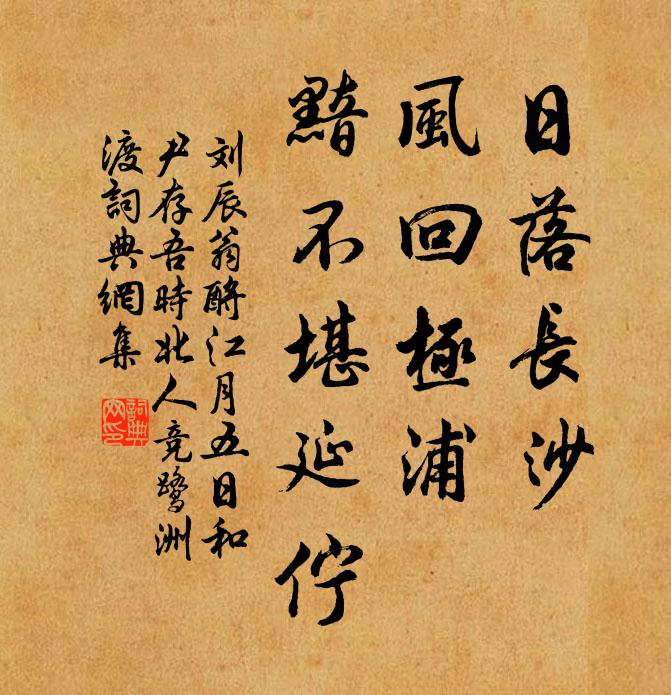 日落長沙
風回極浦
黯不堪延佇
刘辰翁酹江月五日和
尹存吾時北人竞鹭洲
渡詞典網集
詞典
网印